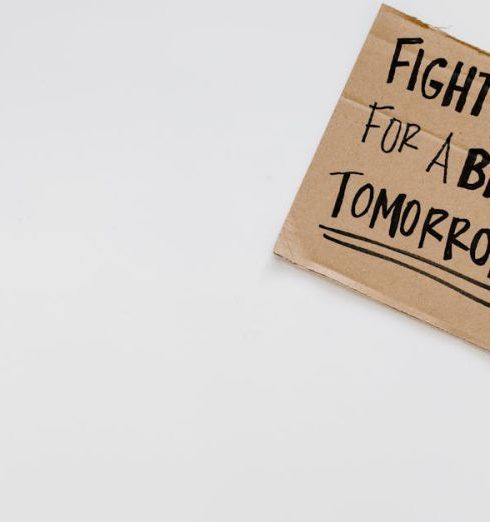 FIGHT
FOR A B
TOMORRO